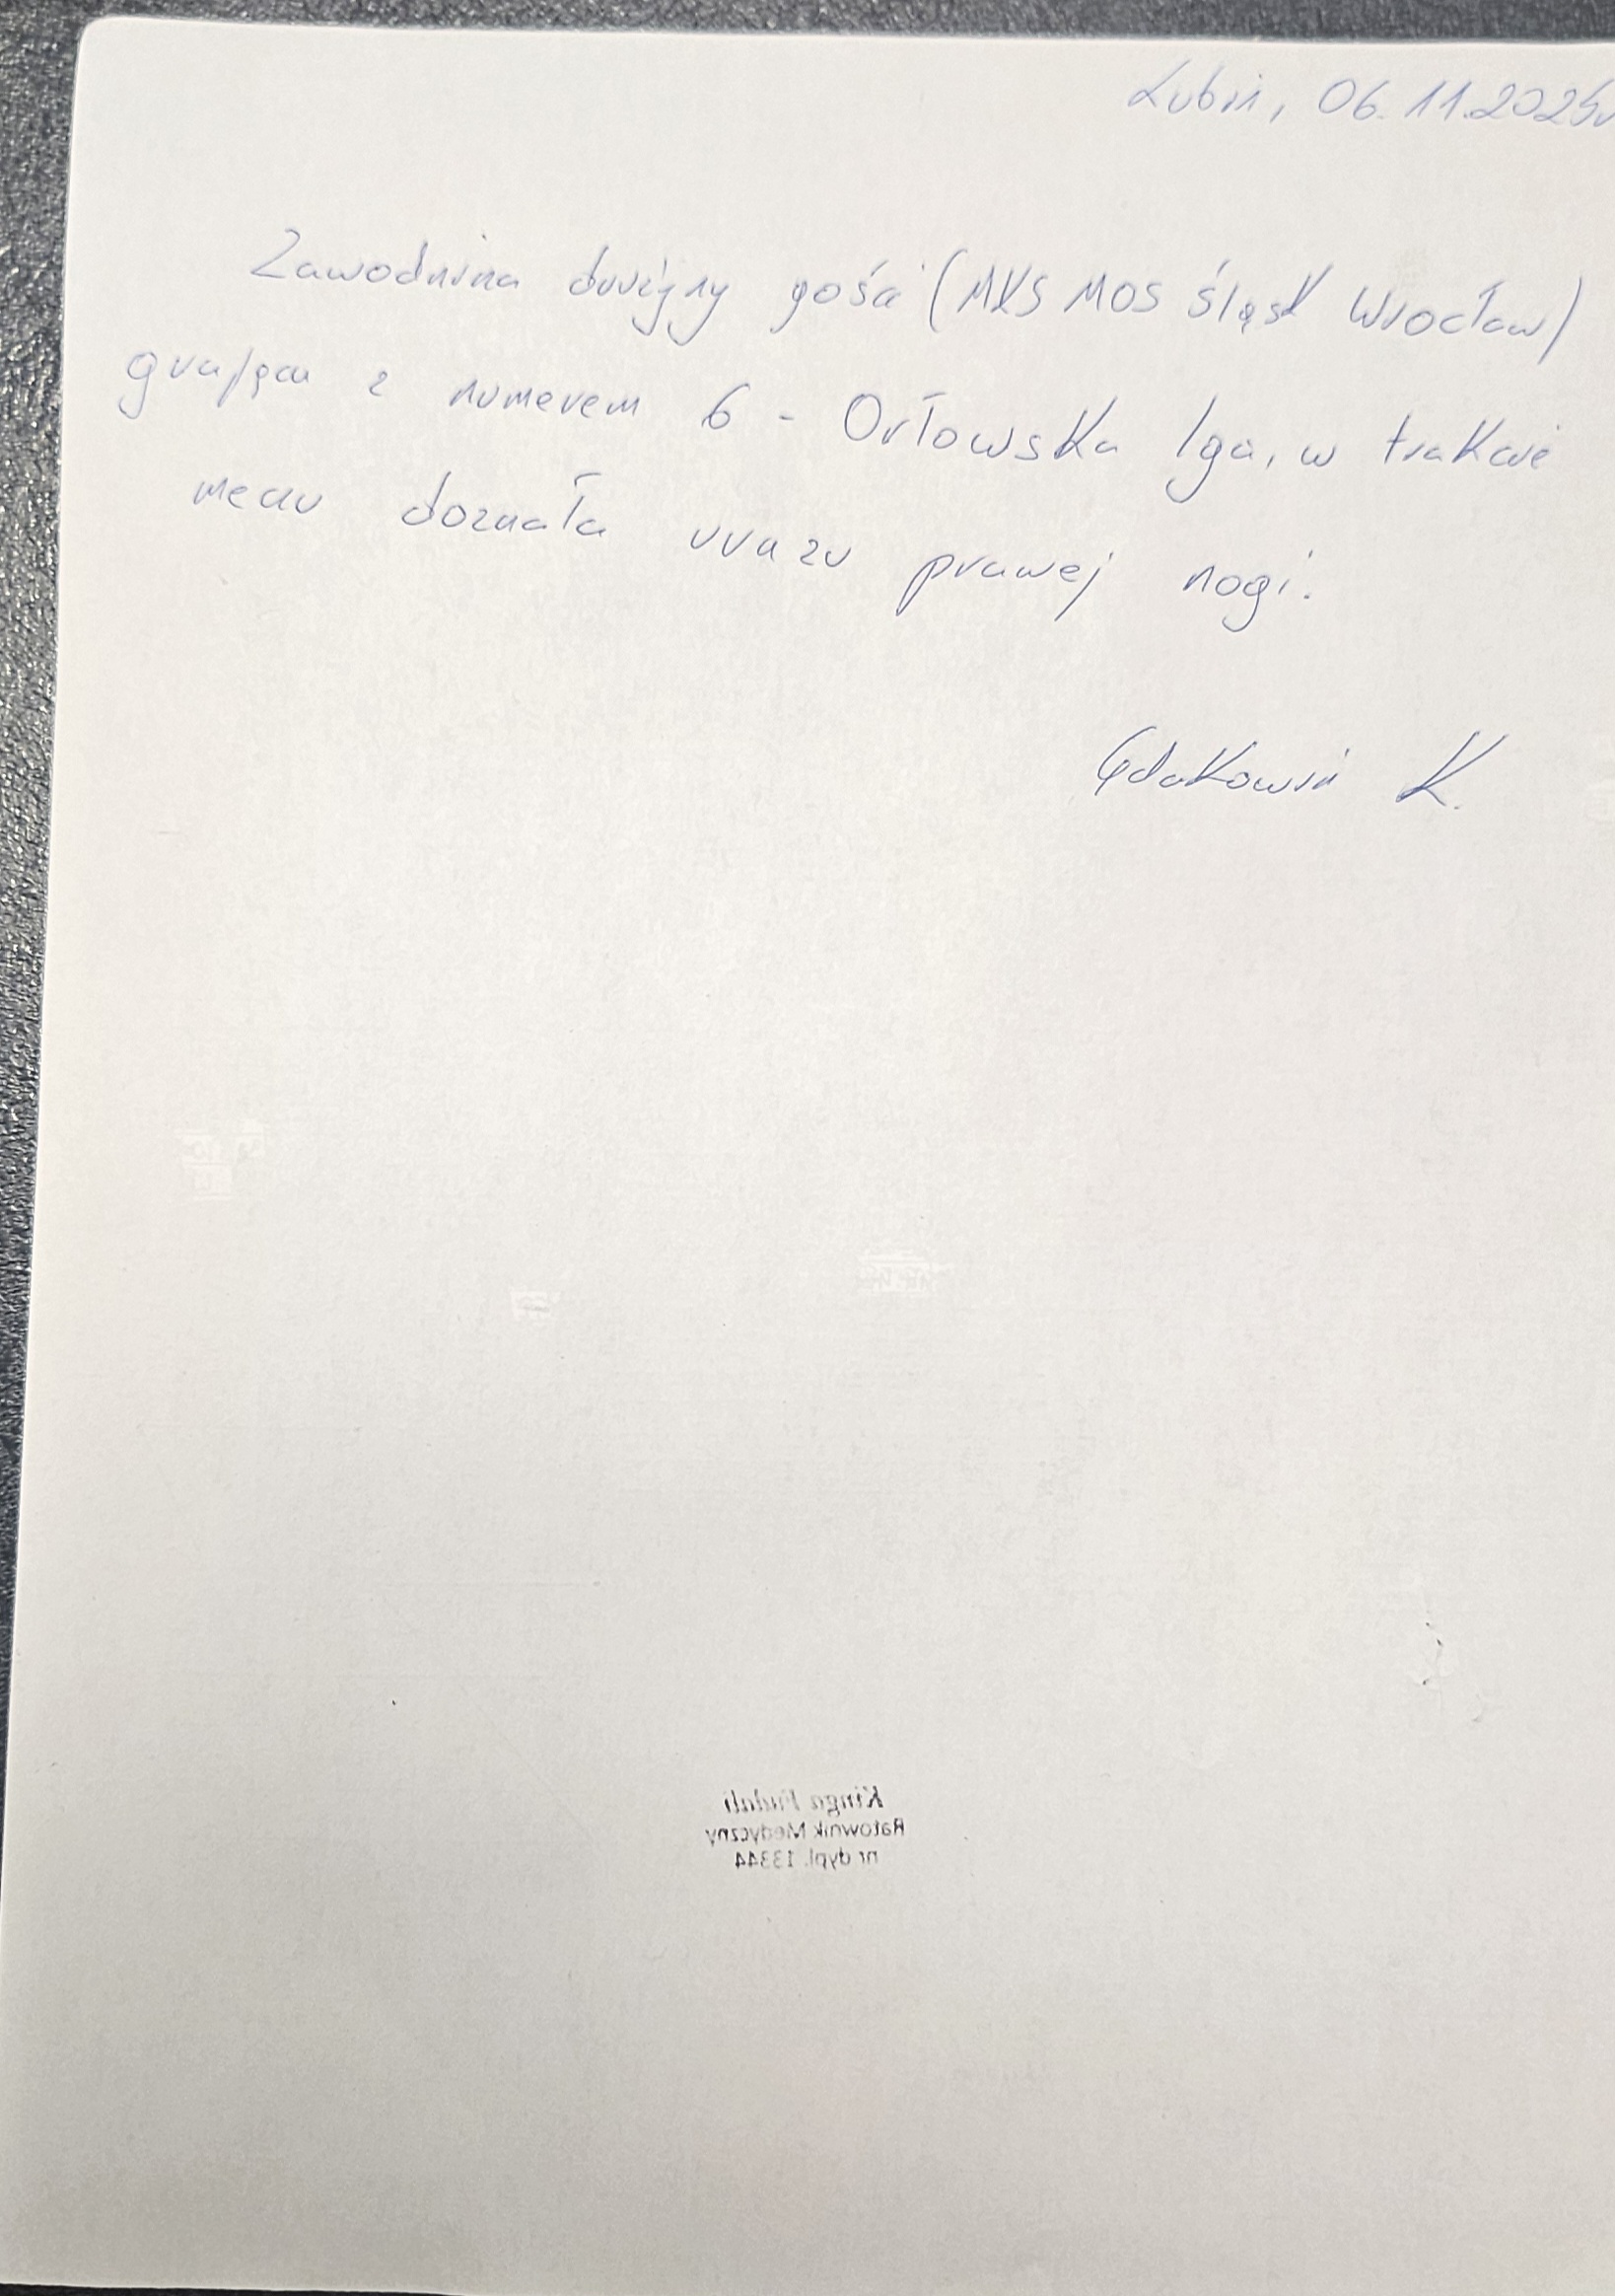 Lubin, 06.11.2025r
Zawodnina drużyny gości (MKS MOS Śląsk Wrocław)
grająca z numerem 6 - Orłowska Iga, w trakcie
meczu doznała urazu prawej nogi.
K.
Kinga Fudali
Ratownik Medyczny
nr dypl. 13344